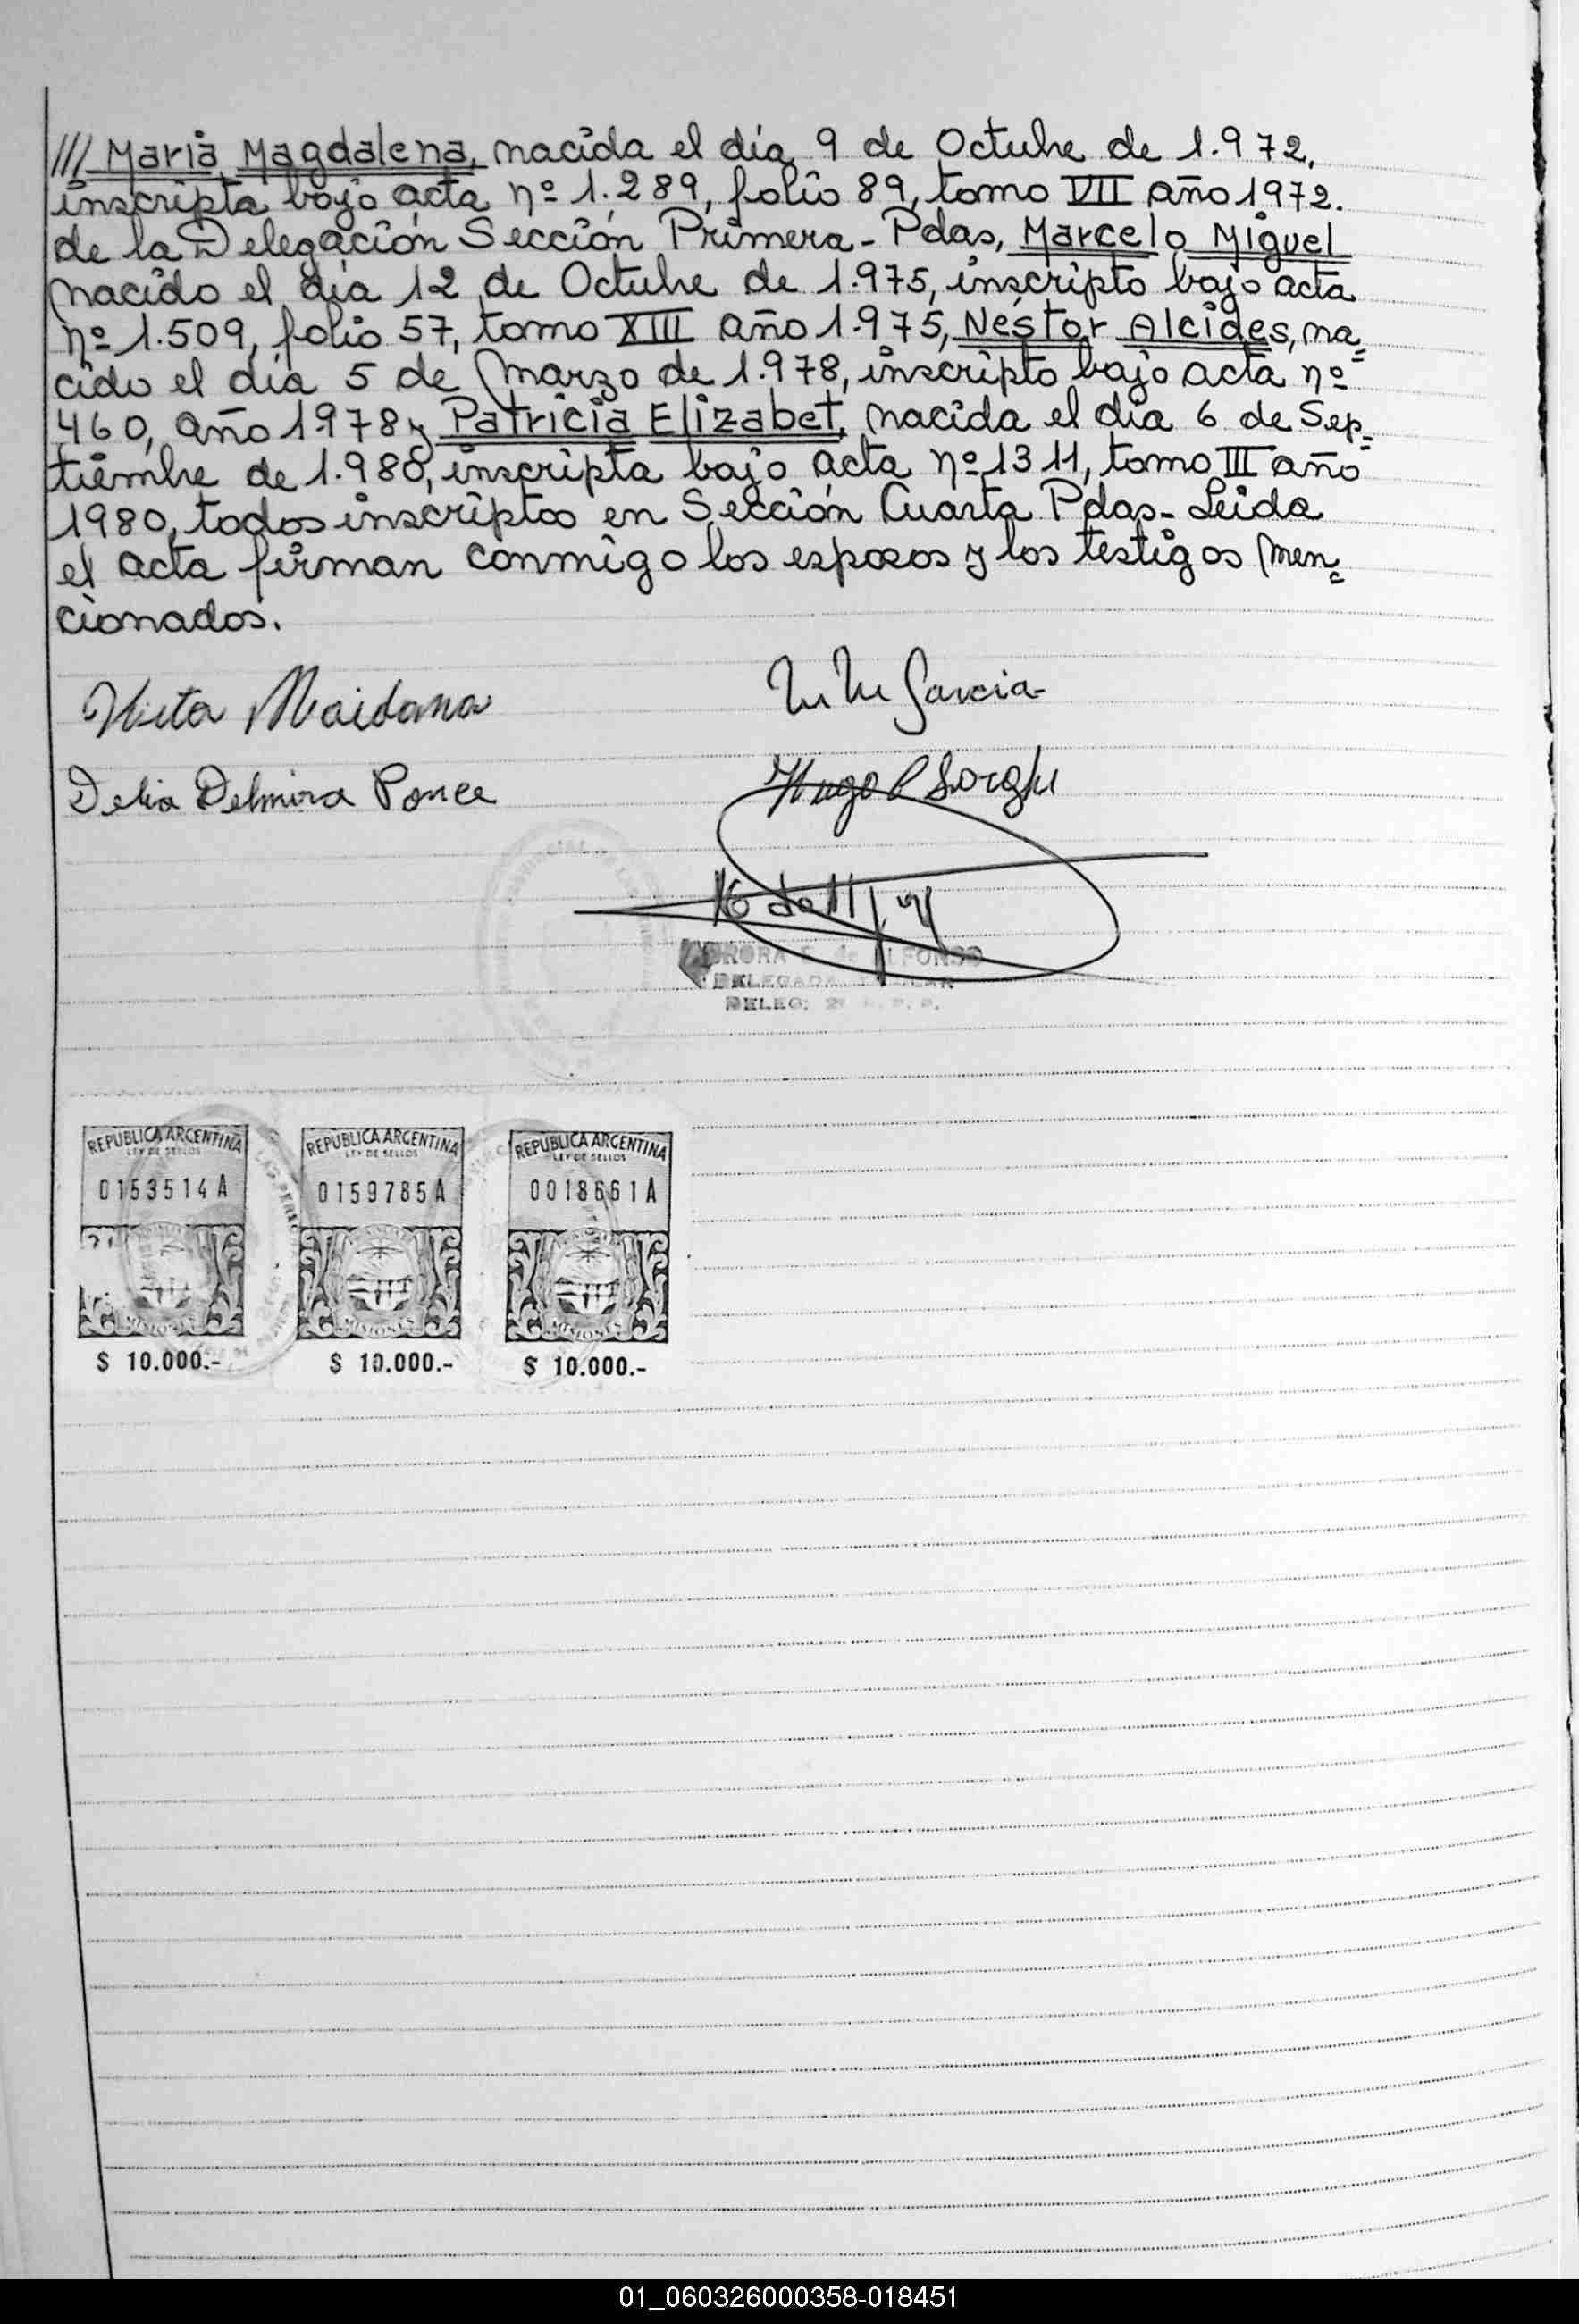 /// Maria Magdalena, nacida el día 9 de Octubre de 1.972,
inscripta bajo acta nº 1.289, folio 89, tomo VII año 1972.
de la Delegación Sección Primera - Pdas, Marcelo Miguel
nacido el día 12 de Octubre de 1.975, inscripto bajo acta
nº 1.509, folio 57, tomo XIII año 1.975, Néstor Alcides, na=
cido el día 5 de Marzo de 1.978, inscripto bajo acta nº
460, año 1978 y Patricia Elizabet, nacida el día 6 de Sep=
tiembre de 1.980, inscripta bajo acta nº 1311, tomo III año
1980, todos inscriptos en Sección Cuarta Pdas- Leida
el acta firman conmigo los esposos y los testigos Men=
cionados.
Maidana
Garcia
Delia Delmira Ponce
Hugo
de ALFONSO
DELEGADA TITULAR
DELEG. 2
REPUBLICA ARGENTINA REPUBLICA ARGENTINA REPUBLICA ARGENTINA
LEY DE SELLOS LEY DE SELLOS LEY DE SELLOS
0153514A 0159785A 0018661A
MISIONES MISIONES MISIONES
$ 10.000.- $ 10.000.- $ 10.000.-
01_060326000358-018451